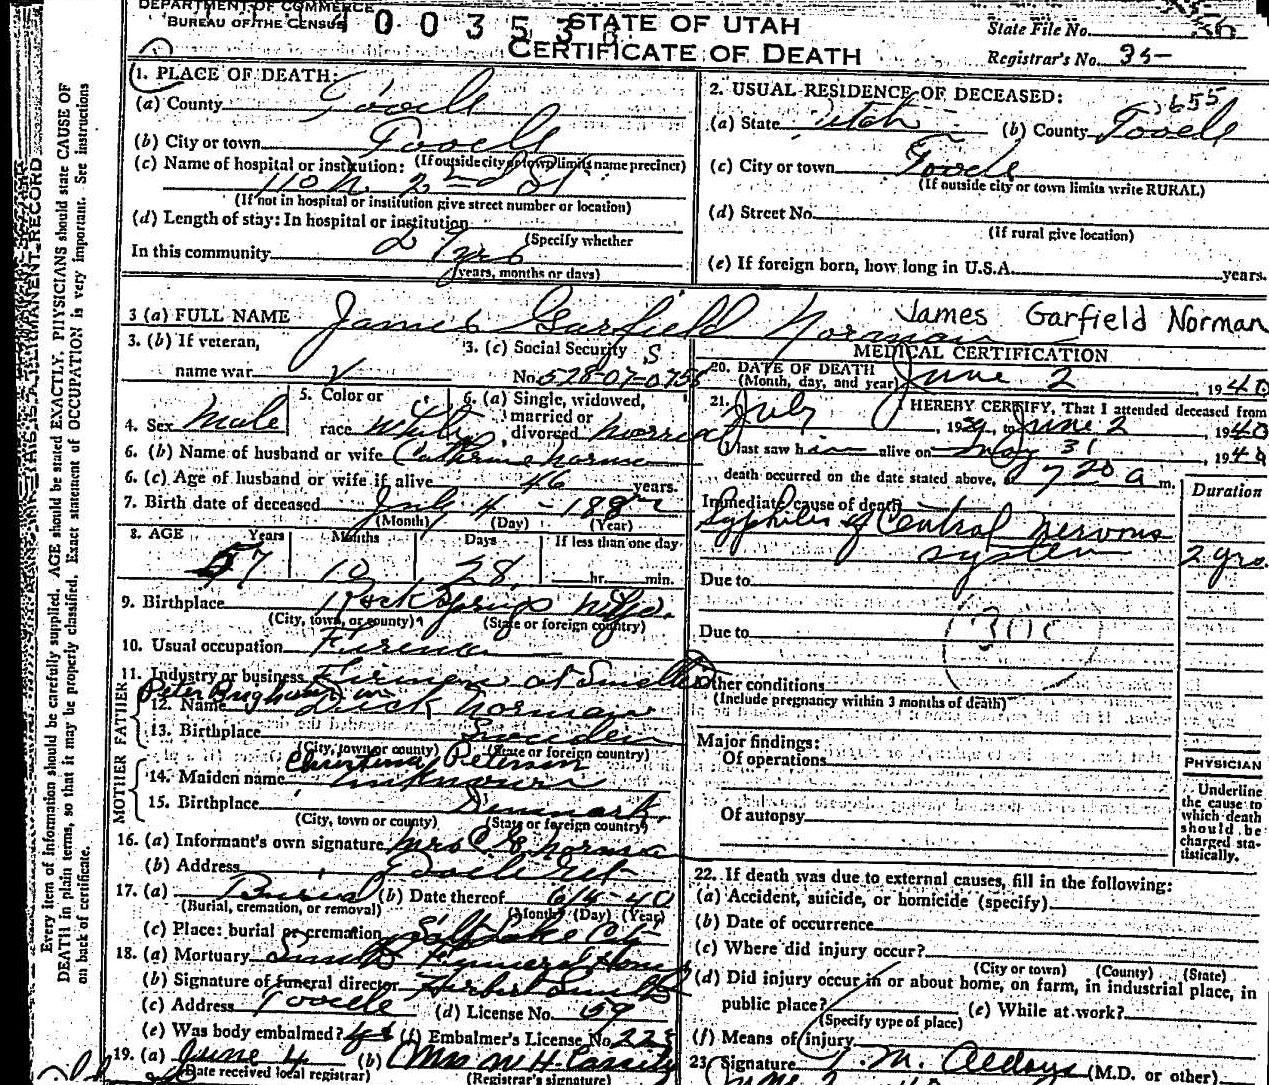 DEPARTMENT OF COMMERCE
BUREAU OF THE CENSUS
4 0 0 3 5 3
STATE OF UTAH
CERTIFICATE OF DEATH
State File No. 36
Registrar's No. 35-
1. PLACE OF DEATH:
(a) County Tooele
(b) City or town Tooele
(If outside city or town limits name precinct)
(c) Name of hospital or institution:
110 N. 2nd St
(If not in hospital or institution give street number or location)
(d) Length of stay: In hospital or institution
(Specify whether
In this community 27 yrs
years, months or days)
2. USUAL RESIDENCE OF DECEASED:
655
(a) State Utah (b) County Tooele
(c) City or town Tooele
(If outside city or town limits write RURAL)
(d) Street No.
(If rural give location)
(e) If foreign born, how long in U.S.A. years.
3 (a) FULL NAME James Garfield Norman
James Garfield Norman
3. (b) If veteran,
name war
3. (c) Social Security
No. 528-07-0758
4. Sex Male
5. Color or
race White
6. (a) Single, widowed,
married or
divorced Married
6. (b) Name of husband or wife Cathrine Norman
6. (c) Age of husband or wife if alive 46 years.
7. Birth date of deceased July 4 - 1882
(Month) (Day) (Year)
8. AGE Years Months Days If less than one day
57 10 28 hr. min.
9. Birthplace Rock Springs Wyo.
(City, town, or county) (State or foreign country)
10. Usual occupation Fireman
11. Industry or business Fireman at Smelter
FATHER
Peter
12. Name Norman
13. Birthplace Sweden
(City, town or county) (State or foreign country)
MOTHER
Christina Peterson
14. Maiden name unknown
15. Birthplace Denmark.
(City, town or county) (State or foreign country)
16. (a) Informant's own signature Mrs C. G. Norman
(b) Address Tooele Ut
17. (a) Burial (b) Date thereof 6/4-40
(Burial, cremation, or removal) (Month) (Day) (Year)
(c) Place: burial or cremation Salt Lake City
18. (a) Mortuary Funeral Home
(b) Signature of funeral director Herbert
(c) Address Tooele (d) License No. 159
(e) Was body embalmed? yes (f) Embalmer's License No. 223
19. (a) June 4 (b) Mrs W H Cassity
(Date received local registrar) (Registrar's signature)
MEDICAL CERTIFICATION
20. DATE OF DEATH
(Month, day, and year) June 2 1940
21. I HEREBY CERTIFY, That I attended deceased from
July , 1939, to June 2 1940
I last saw him alive on May 31 , 1940
death occurred on the date stated above, 720 a m.
Immediate cause of death Duration
Syphilis of Central Nervous
system 2 yrs.
Due to
Due to
30c
Other conditions
(Include pregnancy within 3 months of death)
Major findings:
Of operations
Of autopsy
PHYSICIAN
Underline
the cause to
which death
should be
charged sta-
tistically.
22. If death was due to external causes, fill in the following:
(a) Accident, suicide, or homicide (specify)
(b) Date of occurrence
(c) Where did injury occur?
(City or town) (County) (State)
(d) Did injury occur in or about home, on farm, in industrial place, in
public place? (e) While at work?
(Specify type of place)
(f) Means of injury
23. Signature (M.D. or other)
Every item of information should be carefully supplied. AGE should be stated EXACTLY. PHYSICIANS should state CAUSE OF
DEATH in plain terms, so that it may be properly classified. Exact statement of OCCUPATION is very important. See instructions
on back of certificate.